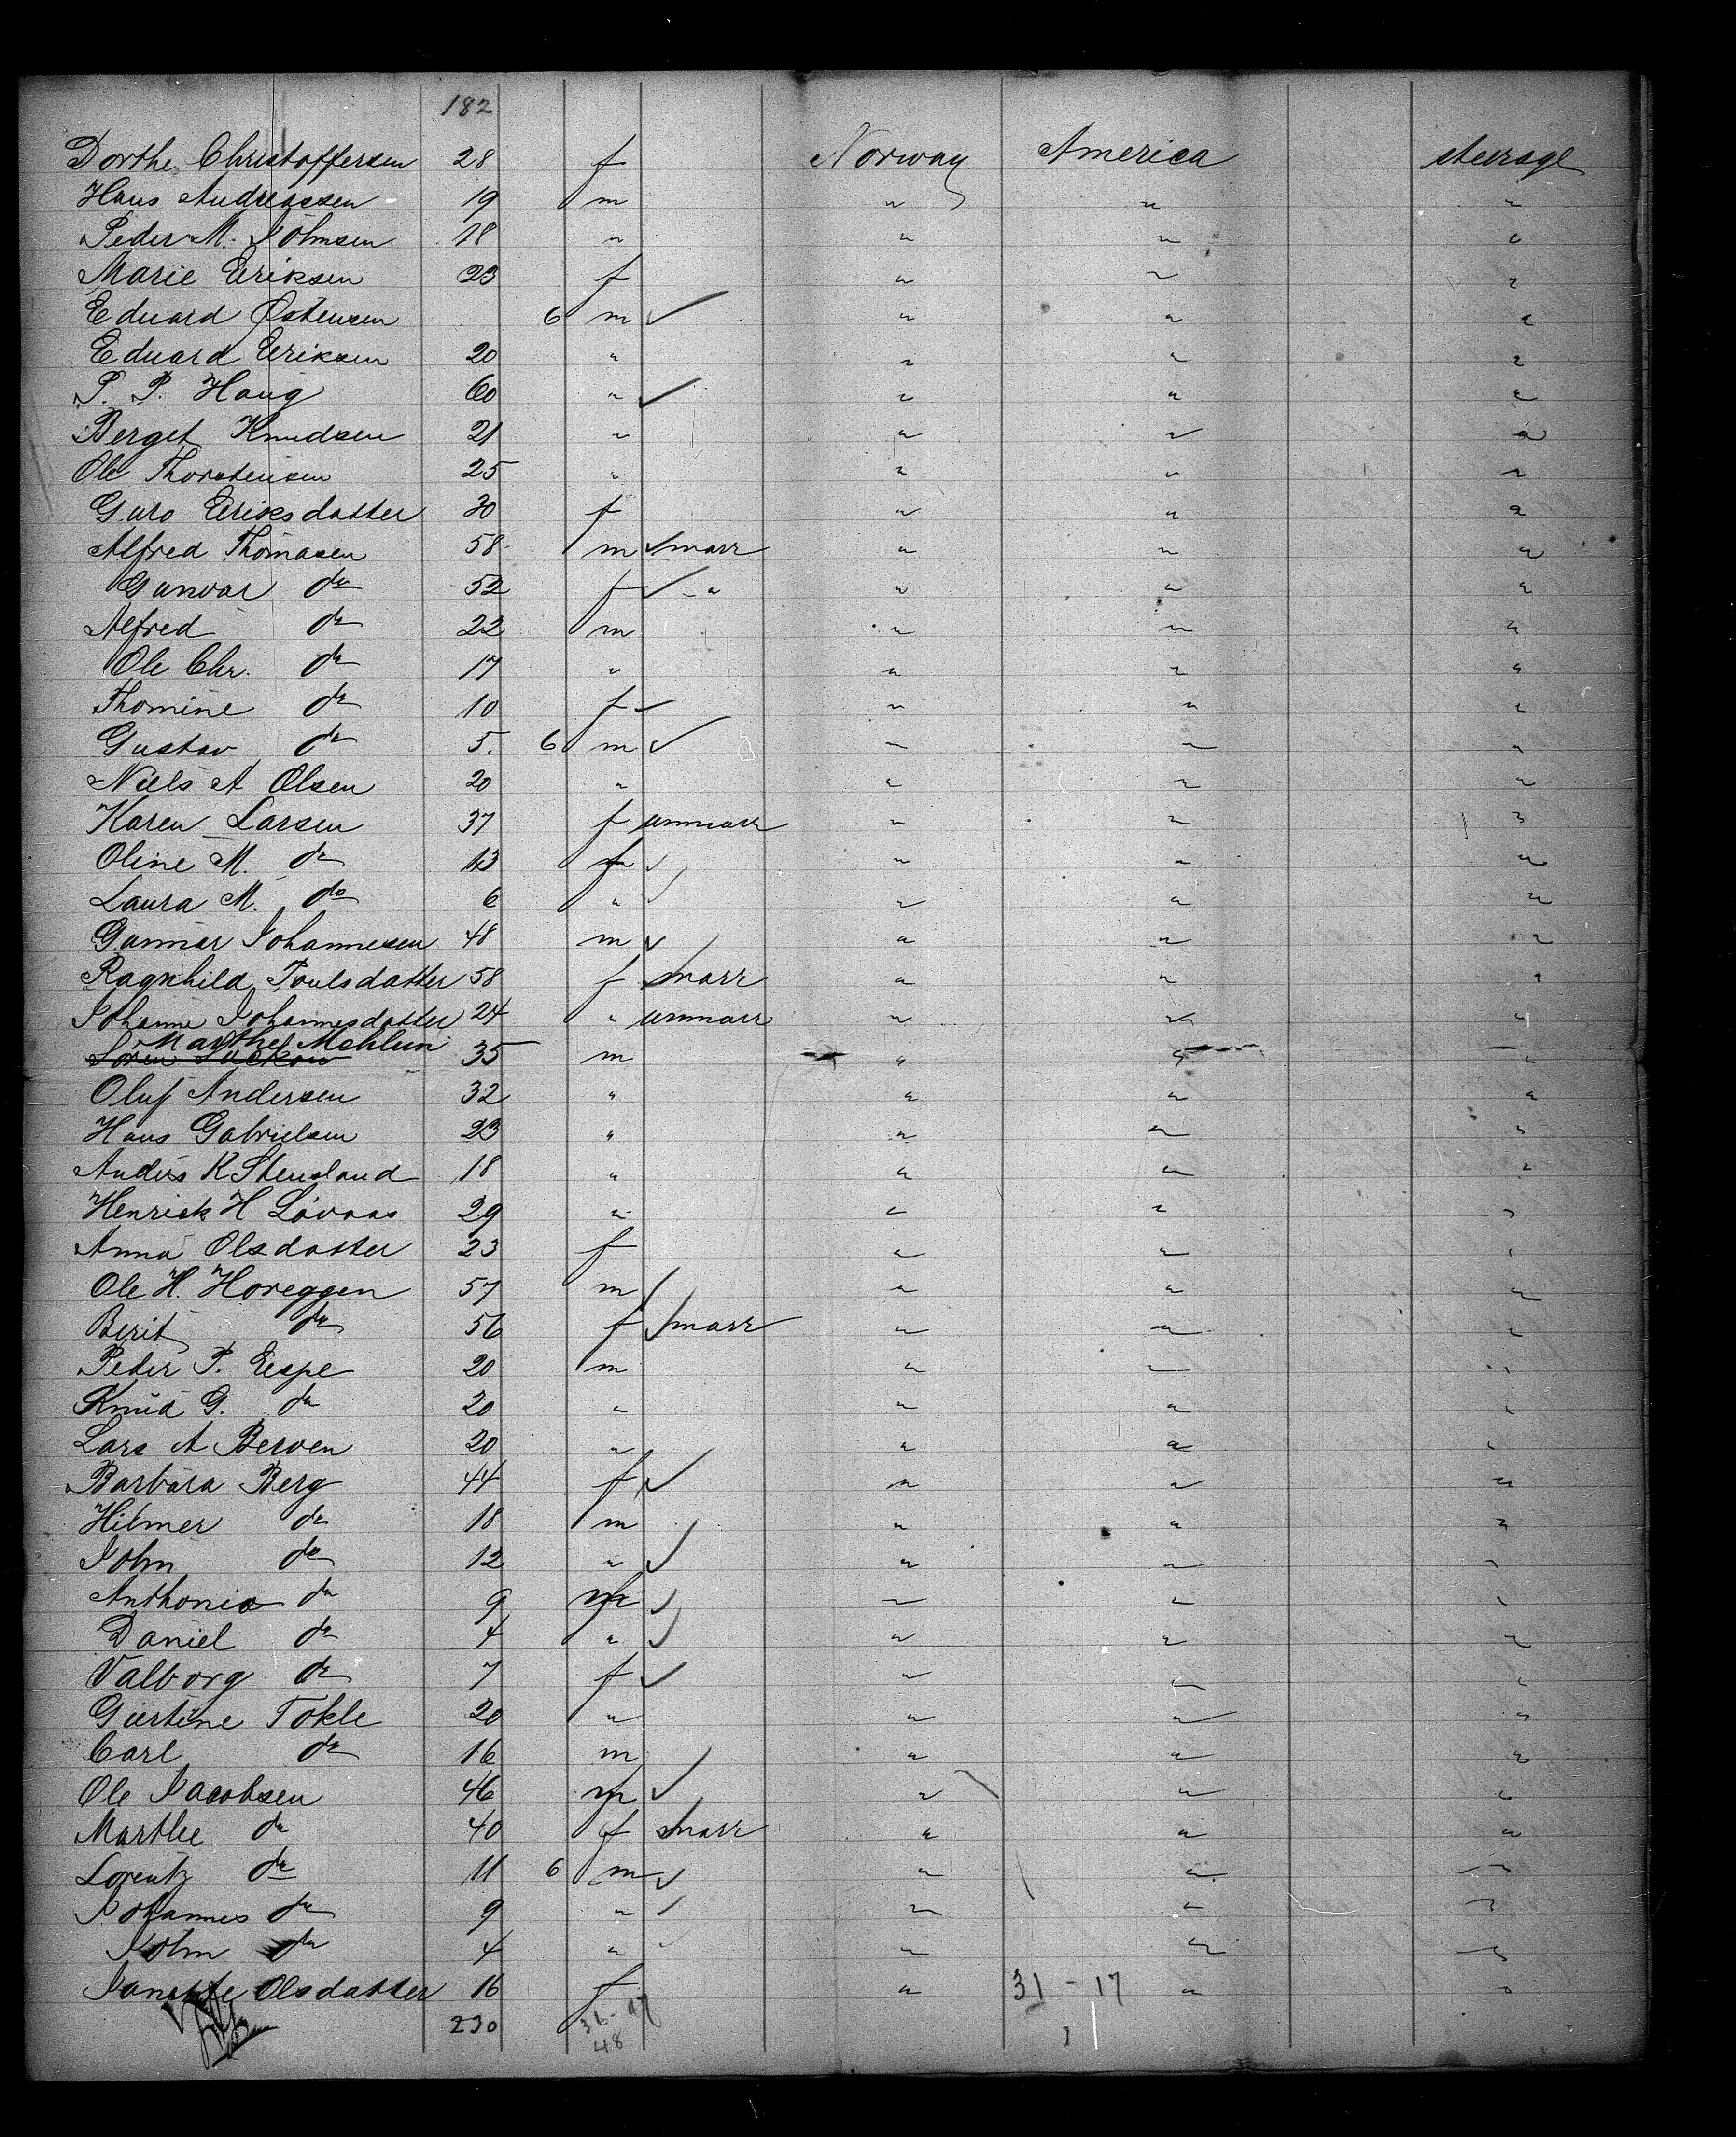 182
Dorthe Christoffersen 28 f Norway America steerage
Hans Andreassen 19 m " " "
Peder M. Johnsen 18 " " " "
Marie Eeriksen 23 f " " "
Eduard Østensen 6 m ✓ " " "
Eduard Eeriksen 20 " " " "
P. Haug 60 " ✓ " " "
Berget Knudsen 21 " " " "
Ole Thorstensen 25 " " " "
Guro Eeriksdatter 30 f " " "
Alfred Thomasen 58 m ✓ marr " " "
Gunvor do 52 f ✓ " " " "
Alfred do 22 m " " "
Ole Chr. do 17 " " " "
Thomine do 10 f ✓ " " "
Gustav do 5. 6 m ✓ " " "
Niels A Olsen 20 " " " "
Karen Larsen 37 f unmarr " " "
Oline M. do 13 f ✓ " " "
Laura M. do 6 " ✓ " " "
Gunnar Johannesen 48 m ✓ " " "
Ragnhild Poulsdatter 58 f marr " " "
Johanne Johannesdatter 24 " unmarr " " "
Marthe Mehlum
Soren 35 m " " "
Oluf Andersen 32 " " " "
Hans Gabrielsen 23 " " " "
Anders K Stensland 18 " " " "
Henrick H Lövaas 29 " " " "
Anna Olsdatter 23 f " " "
Ole H. Horeggen 57 m ✓ " " "
Berit do 56 f ✓ marr " " "
Peder P. Eespe 20 m " " "
Knud G. do 20 " " " "
Lars A Berven 20 " " " "
Barbara Berg 44 f ✓ " " "
Hilmer do 18 m " " "
John do 12 " ✓ " " "
Anthonio do 9 m ✓ " " "
Daniel do 4 " ✓ " " "
Valborg do 7 f ✓ " " "
Giertine Tokle 20 " " " "
Carl do 16 m " " "
Ole Jacobsen 46 m ✓ " " "
Marthe do 40 f marr " " "
Lorentz do 11 6 m ✓ " " "
Johannes do 9 " ✓ " " "
John do 4 " ✓ " " "
Olsdatter 16 f " 31 - 17 " "
230 36 - 17
48